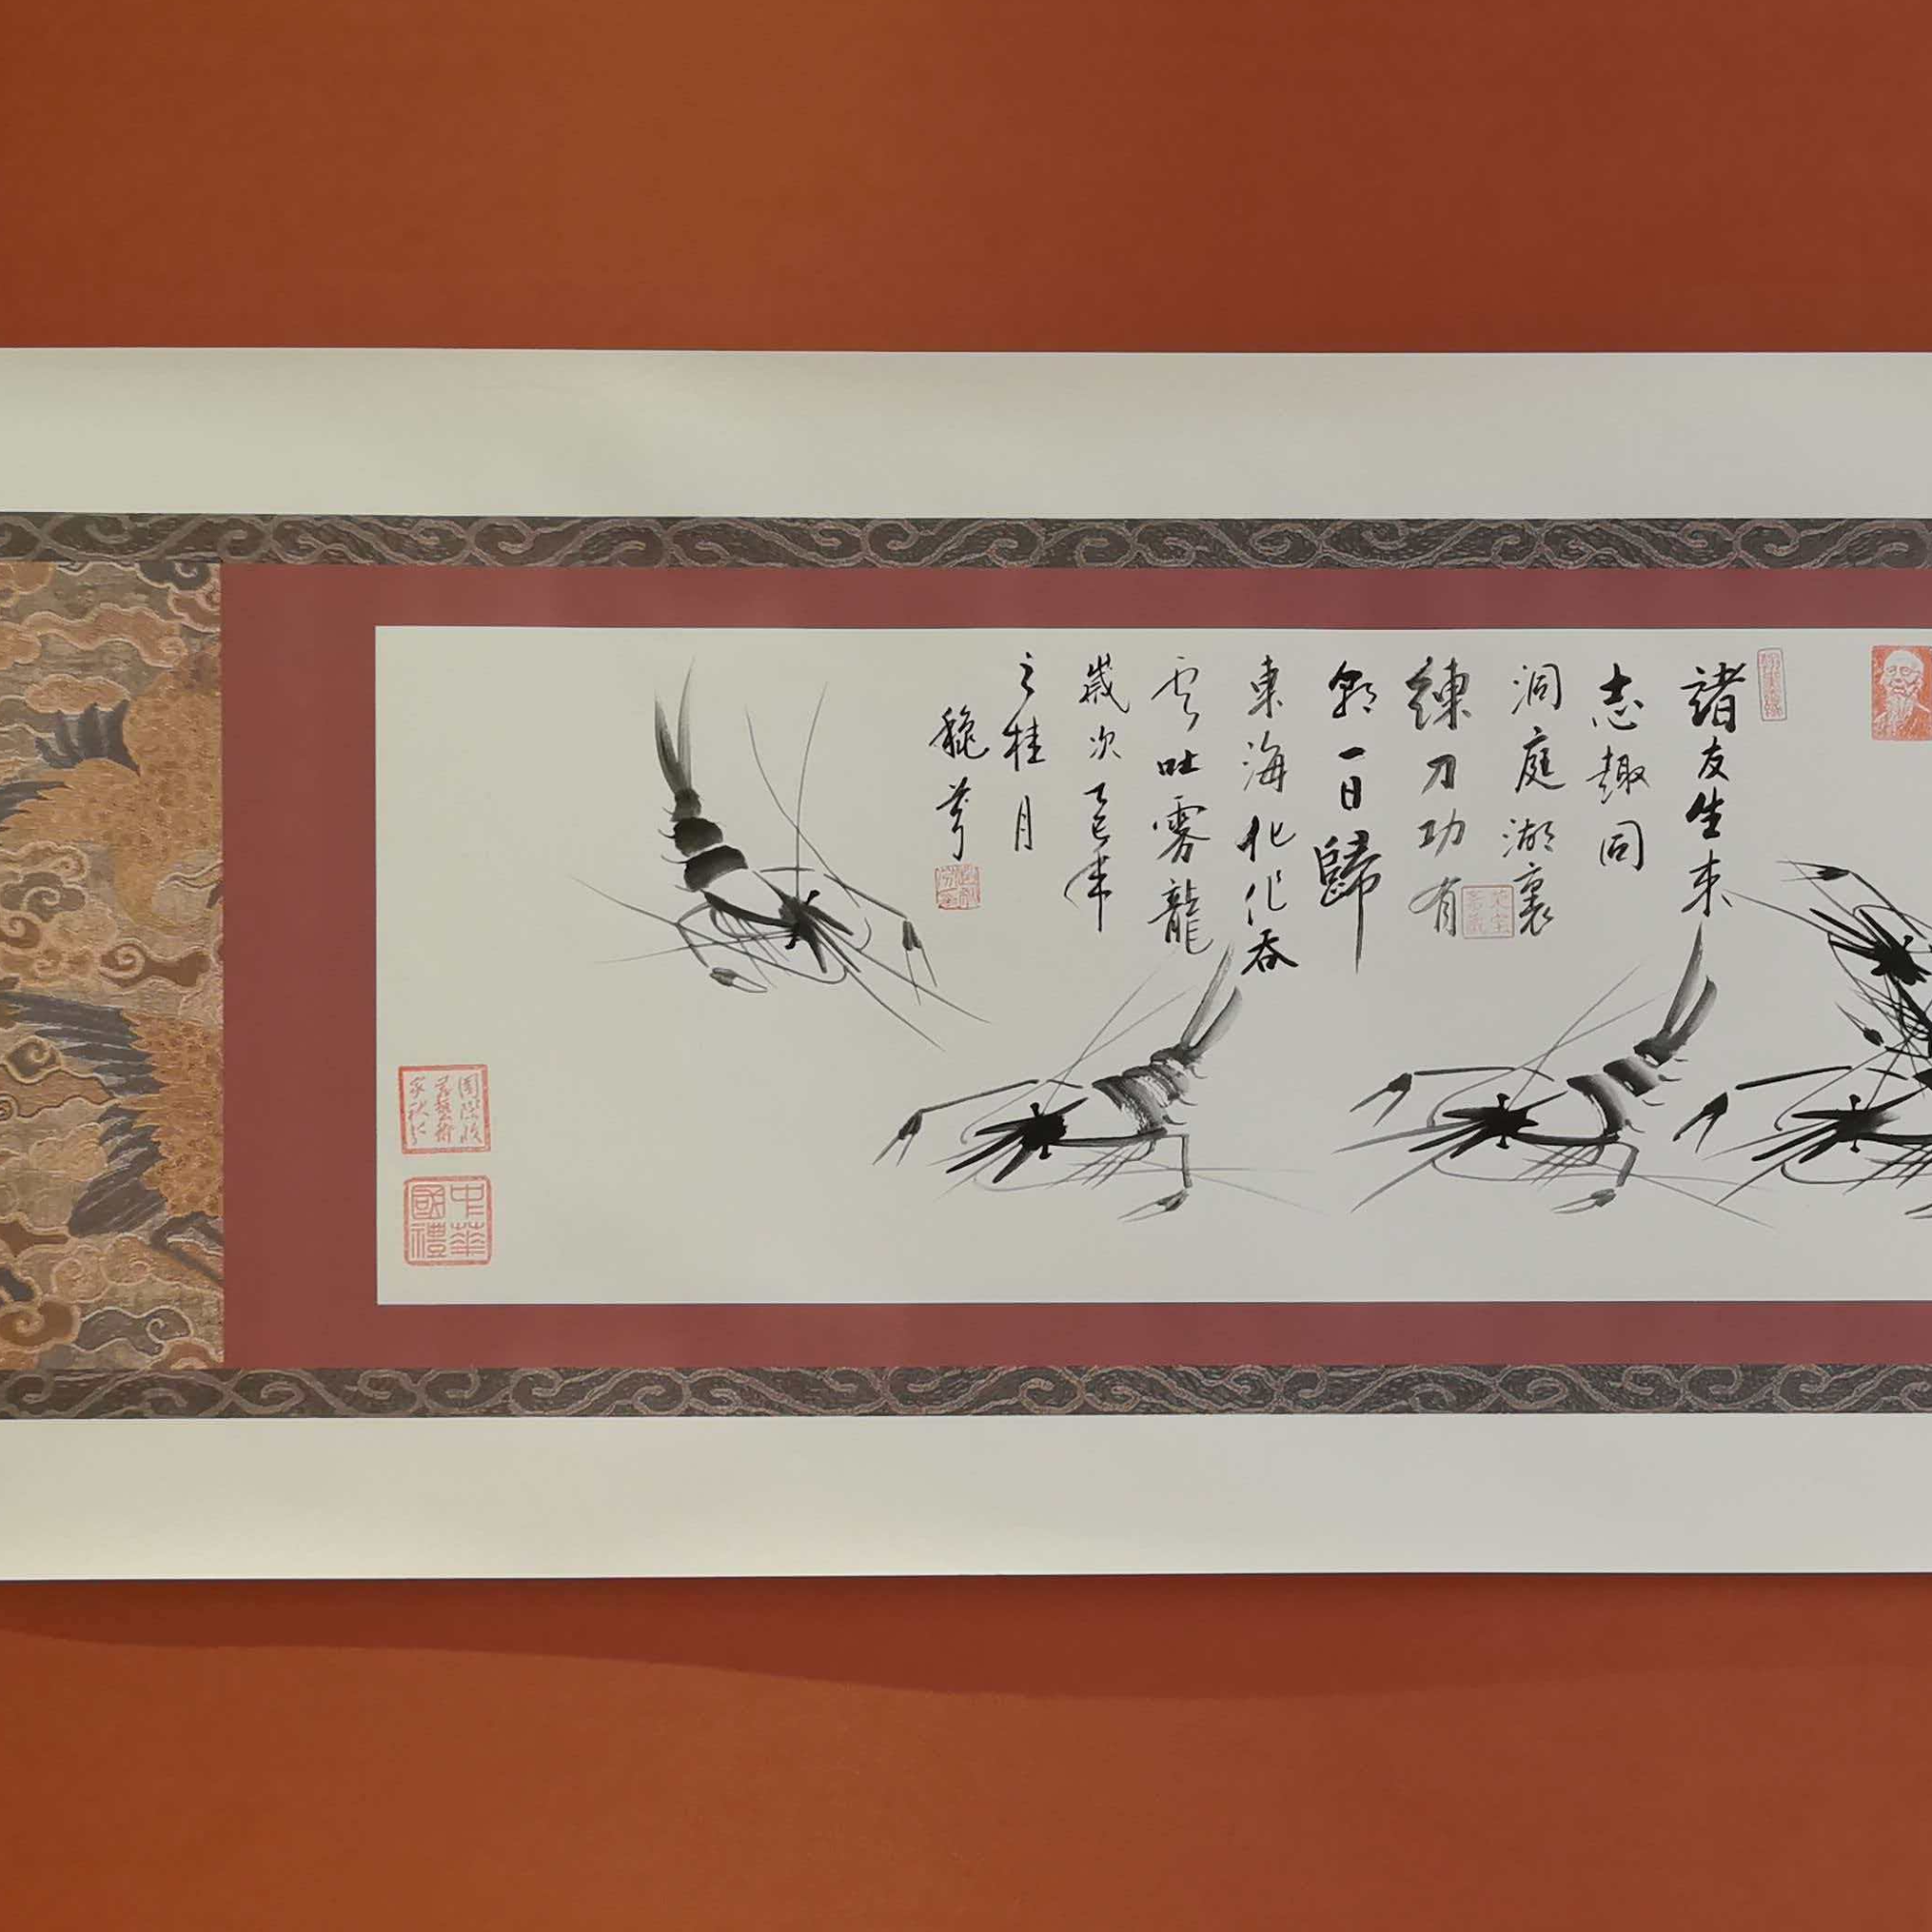 諸友生來
志趣同
洞庭湖裏
練刀功有
朝一日歸
東海化作吞
雲吐霧龍
歲次乙巳年
之桂月
中華國禮